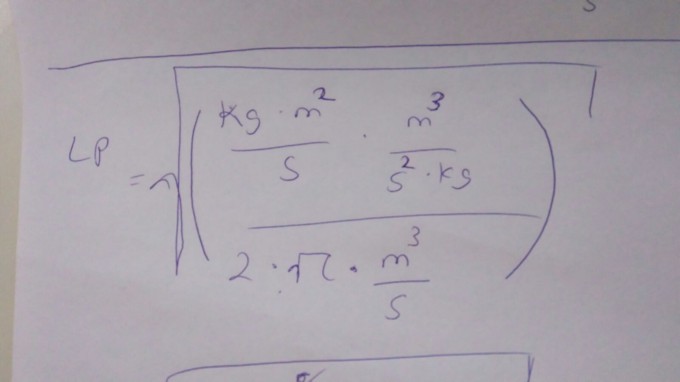 s
LP = √( (Kg · m² / s · m³ / s² · Kg) / (2 · π · m³ / s) )